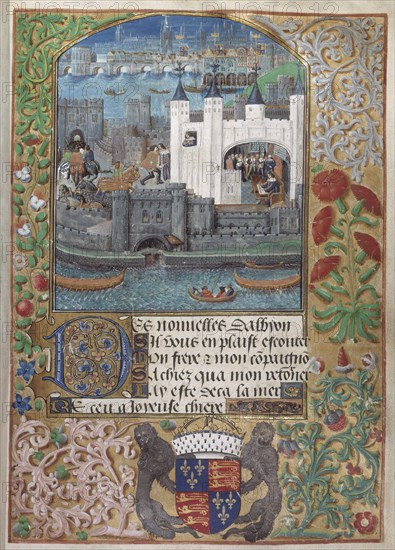 Des nouuelles dalbyon
Sil vous en plaist escouter
Mon frere & mon cōpaignō
Sachiez qua mon retorner
Jay este deca la mer
Receu a Joyeuse chiere